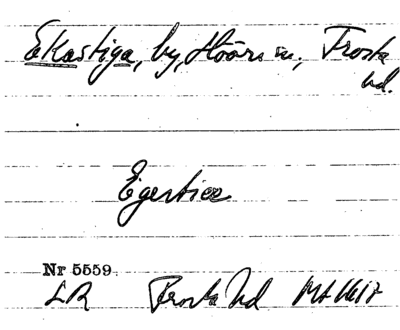 Ekastiga, by, Höörs sn, Frosta
hd.
Egerstice
Nr 5559
LR Frosta hd